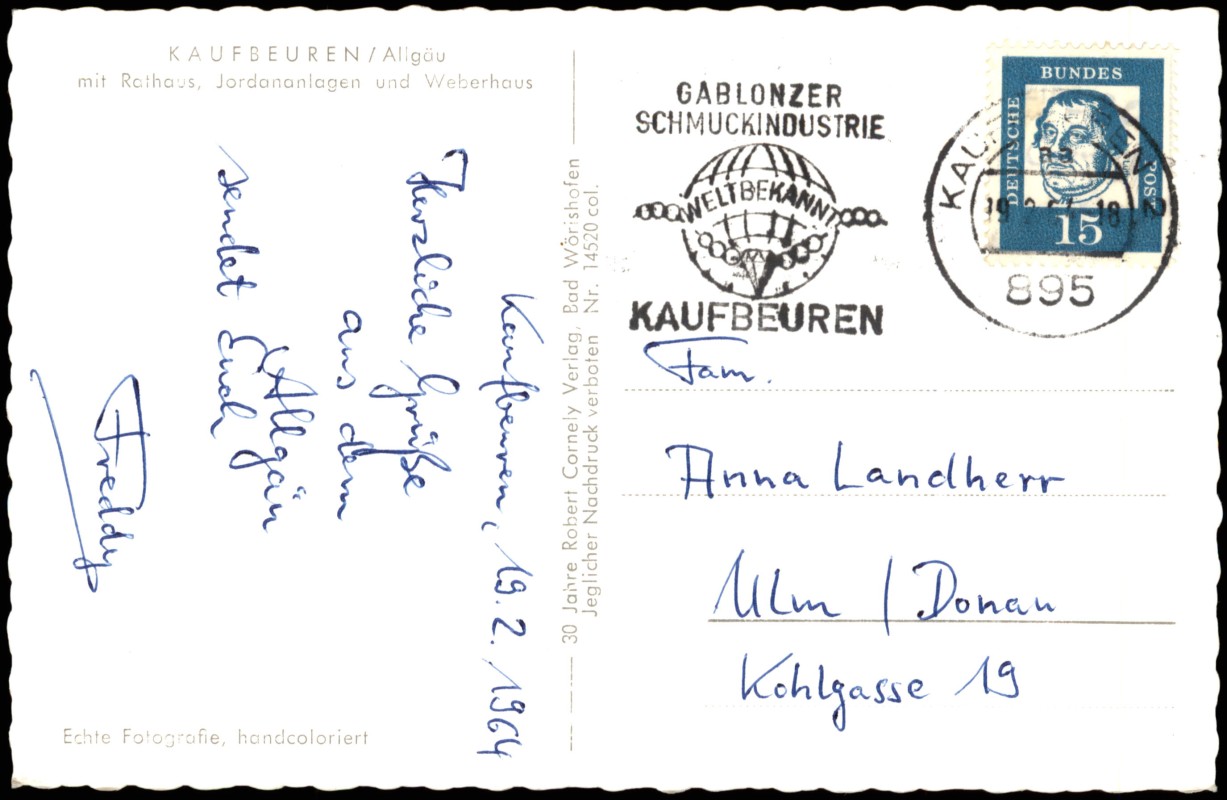 KAUFBEUREN/Allgäu
mit Rathaus, Jordananlagen und Weberhaus
Kaufbeuren, 19.2.1964
Herzliche Grüße
aus dem
Allgäu
sendet Euch
Freddy
Echte Fotografie, handcoloriert
30 Jahre Robert Cornely Verlag, Bad Wörishofen
Jeglicher Nachdruck verboten Nr. 14520 col.
GABLONZER
SCHMUCKINDUSTRIE
WELTBEKANNT
KAUFBEUREN
DEUTSCHE
BUNDES
POST
15
KAUFBEUREN 2
895
Fam.
Anna Landherr
Ulm / Donau
Kohlgasse 19